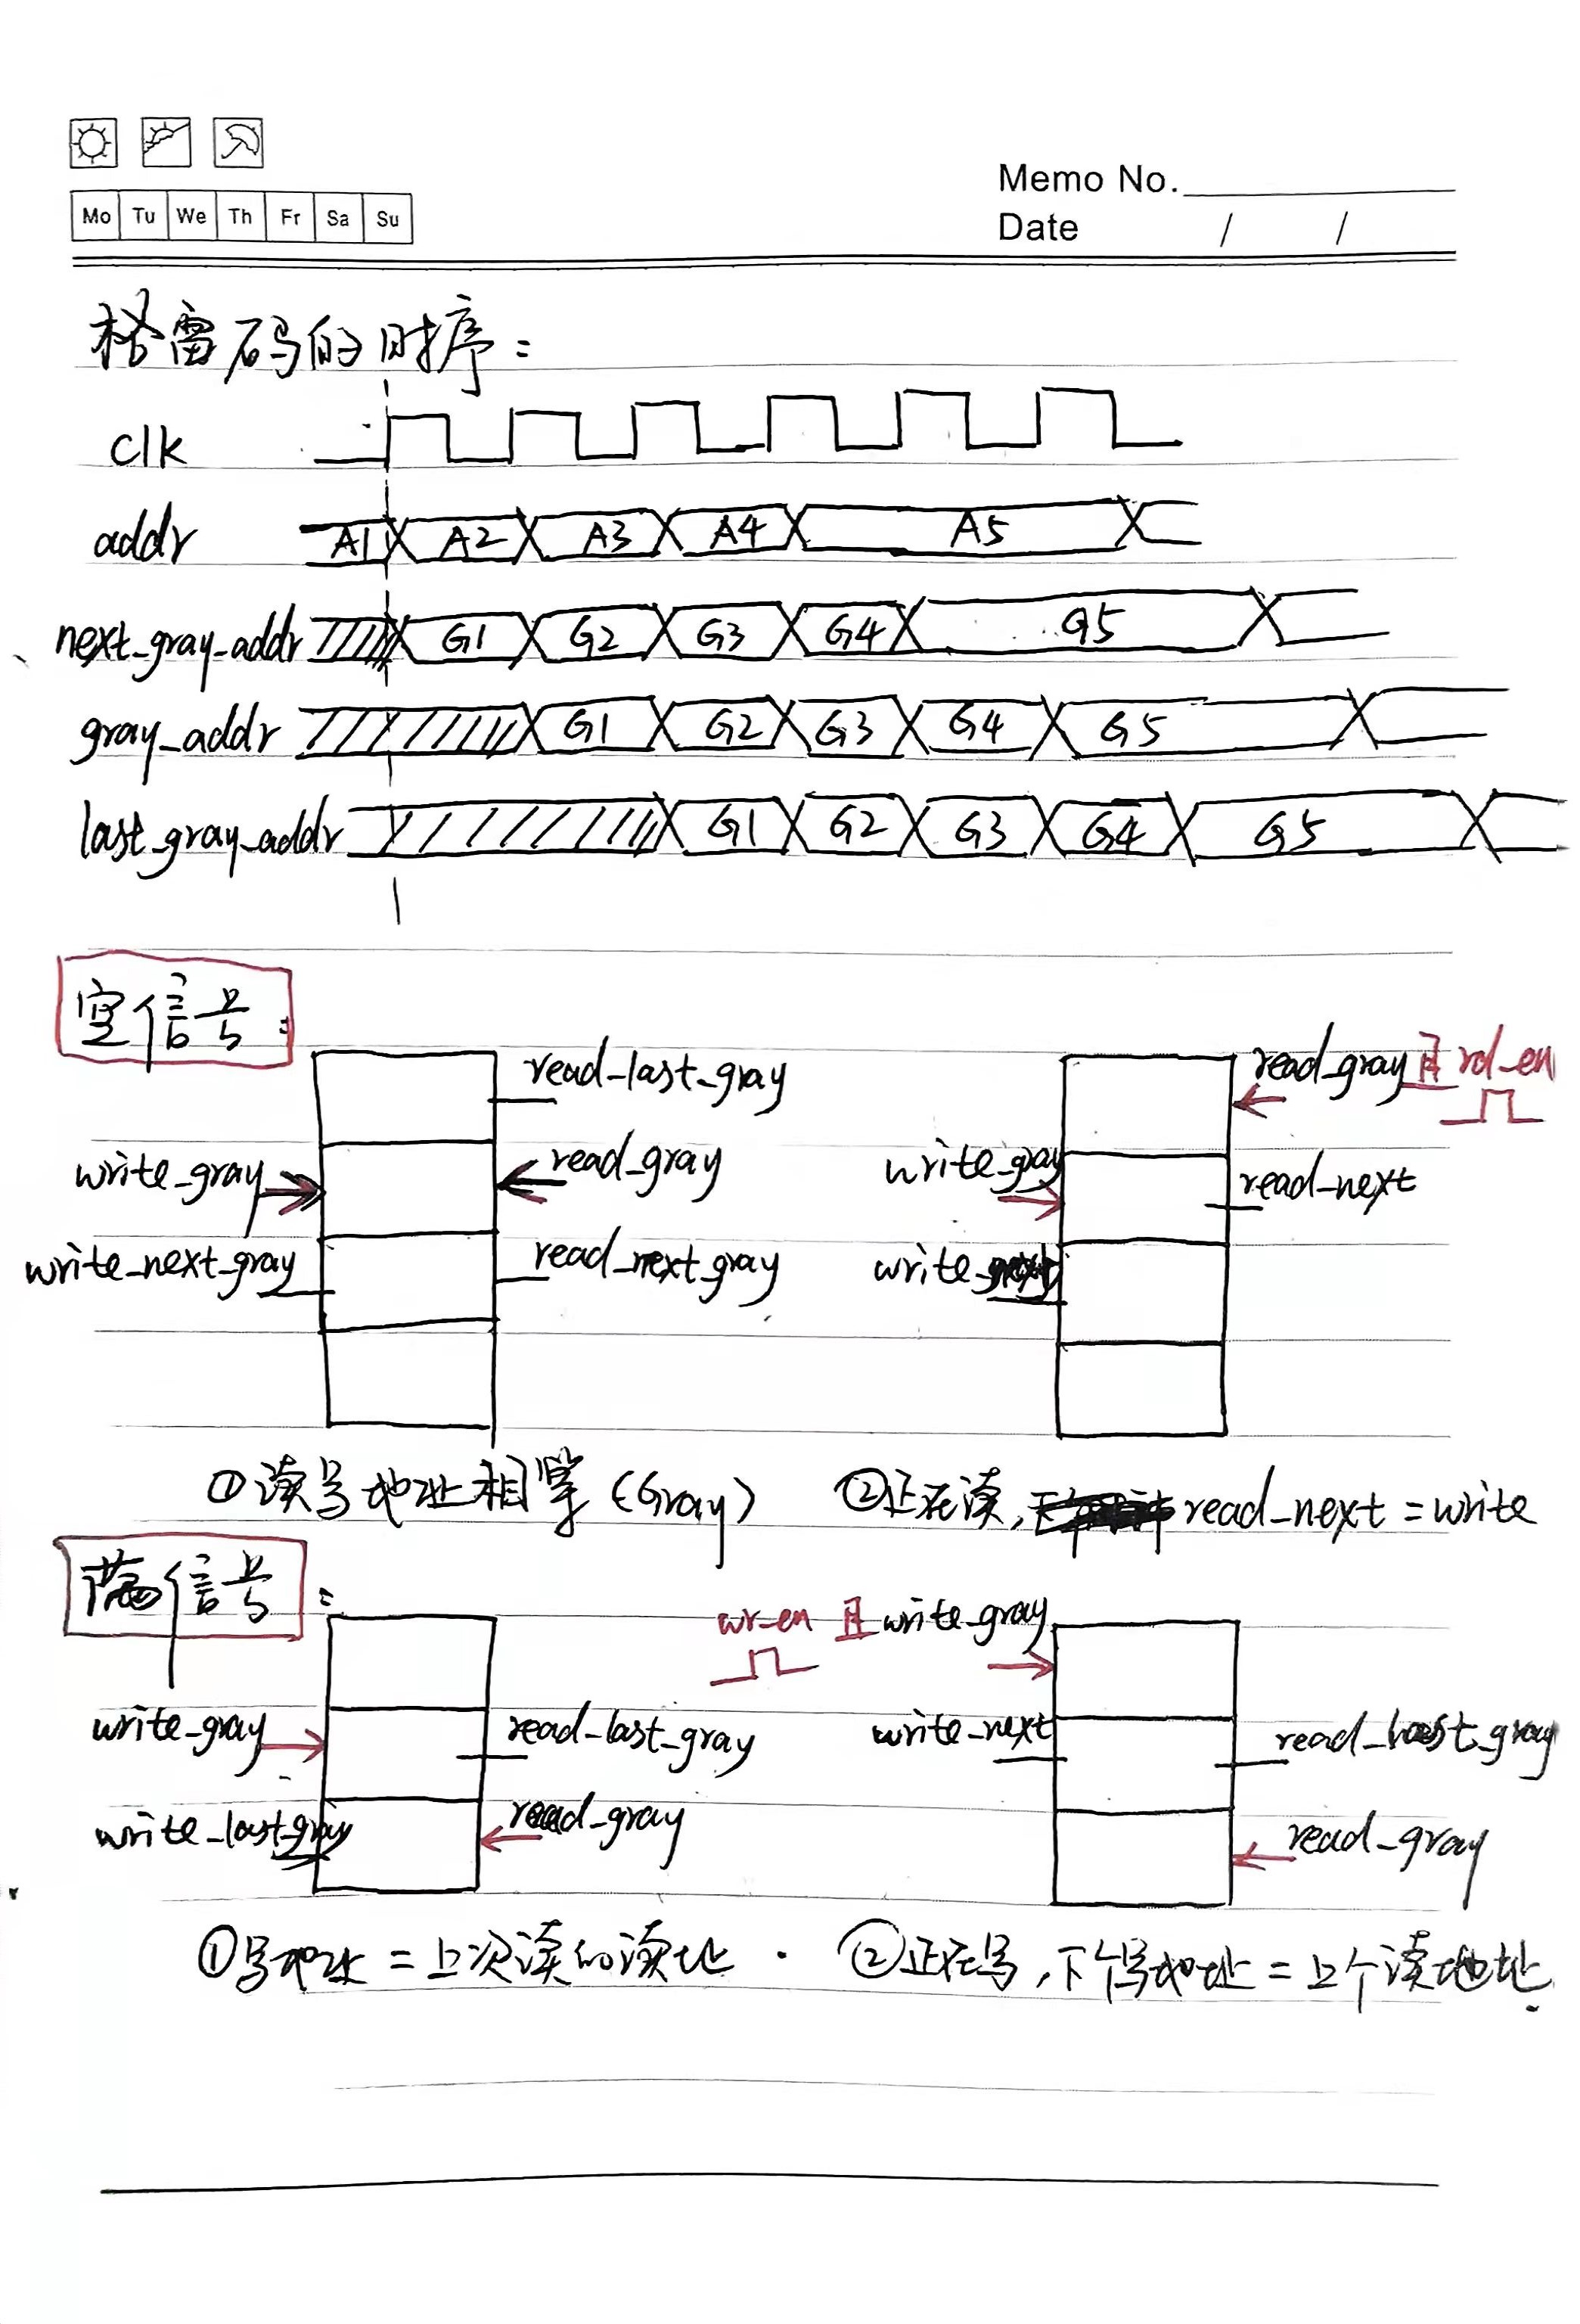 Memo No.
Mo Tu We Th Fr Sa Su
Date / /
格雷码的时序：
clk
addr A1 A2 A3 A4 A5
next_gray_addr G1 G2 G3 G4 G5
gray_addr G1 G2 G3 G4 G5
last_gray_addr G1 G2 G3 G4 G5
空信号：
read_last_gray
write_gray read_gray
write_next_gray read_next_gray
read_gray 且 rd_en
write_gray read_next
write_next
①读写地址相等（Gray） ②正在读，read_next = write
满信号：
write_gray read_last_gray
write_last_gray read_gray
wr_en 且 write_gray
write_next read_last_gray
read_gray
①写地址 = 上次读的读址. ②正在写，下个写地址 = 上个读地址.